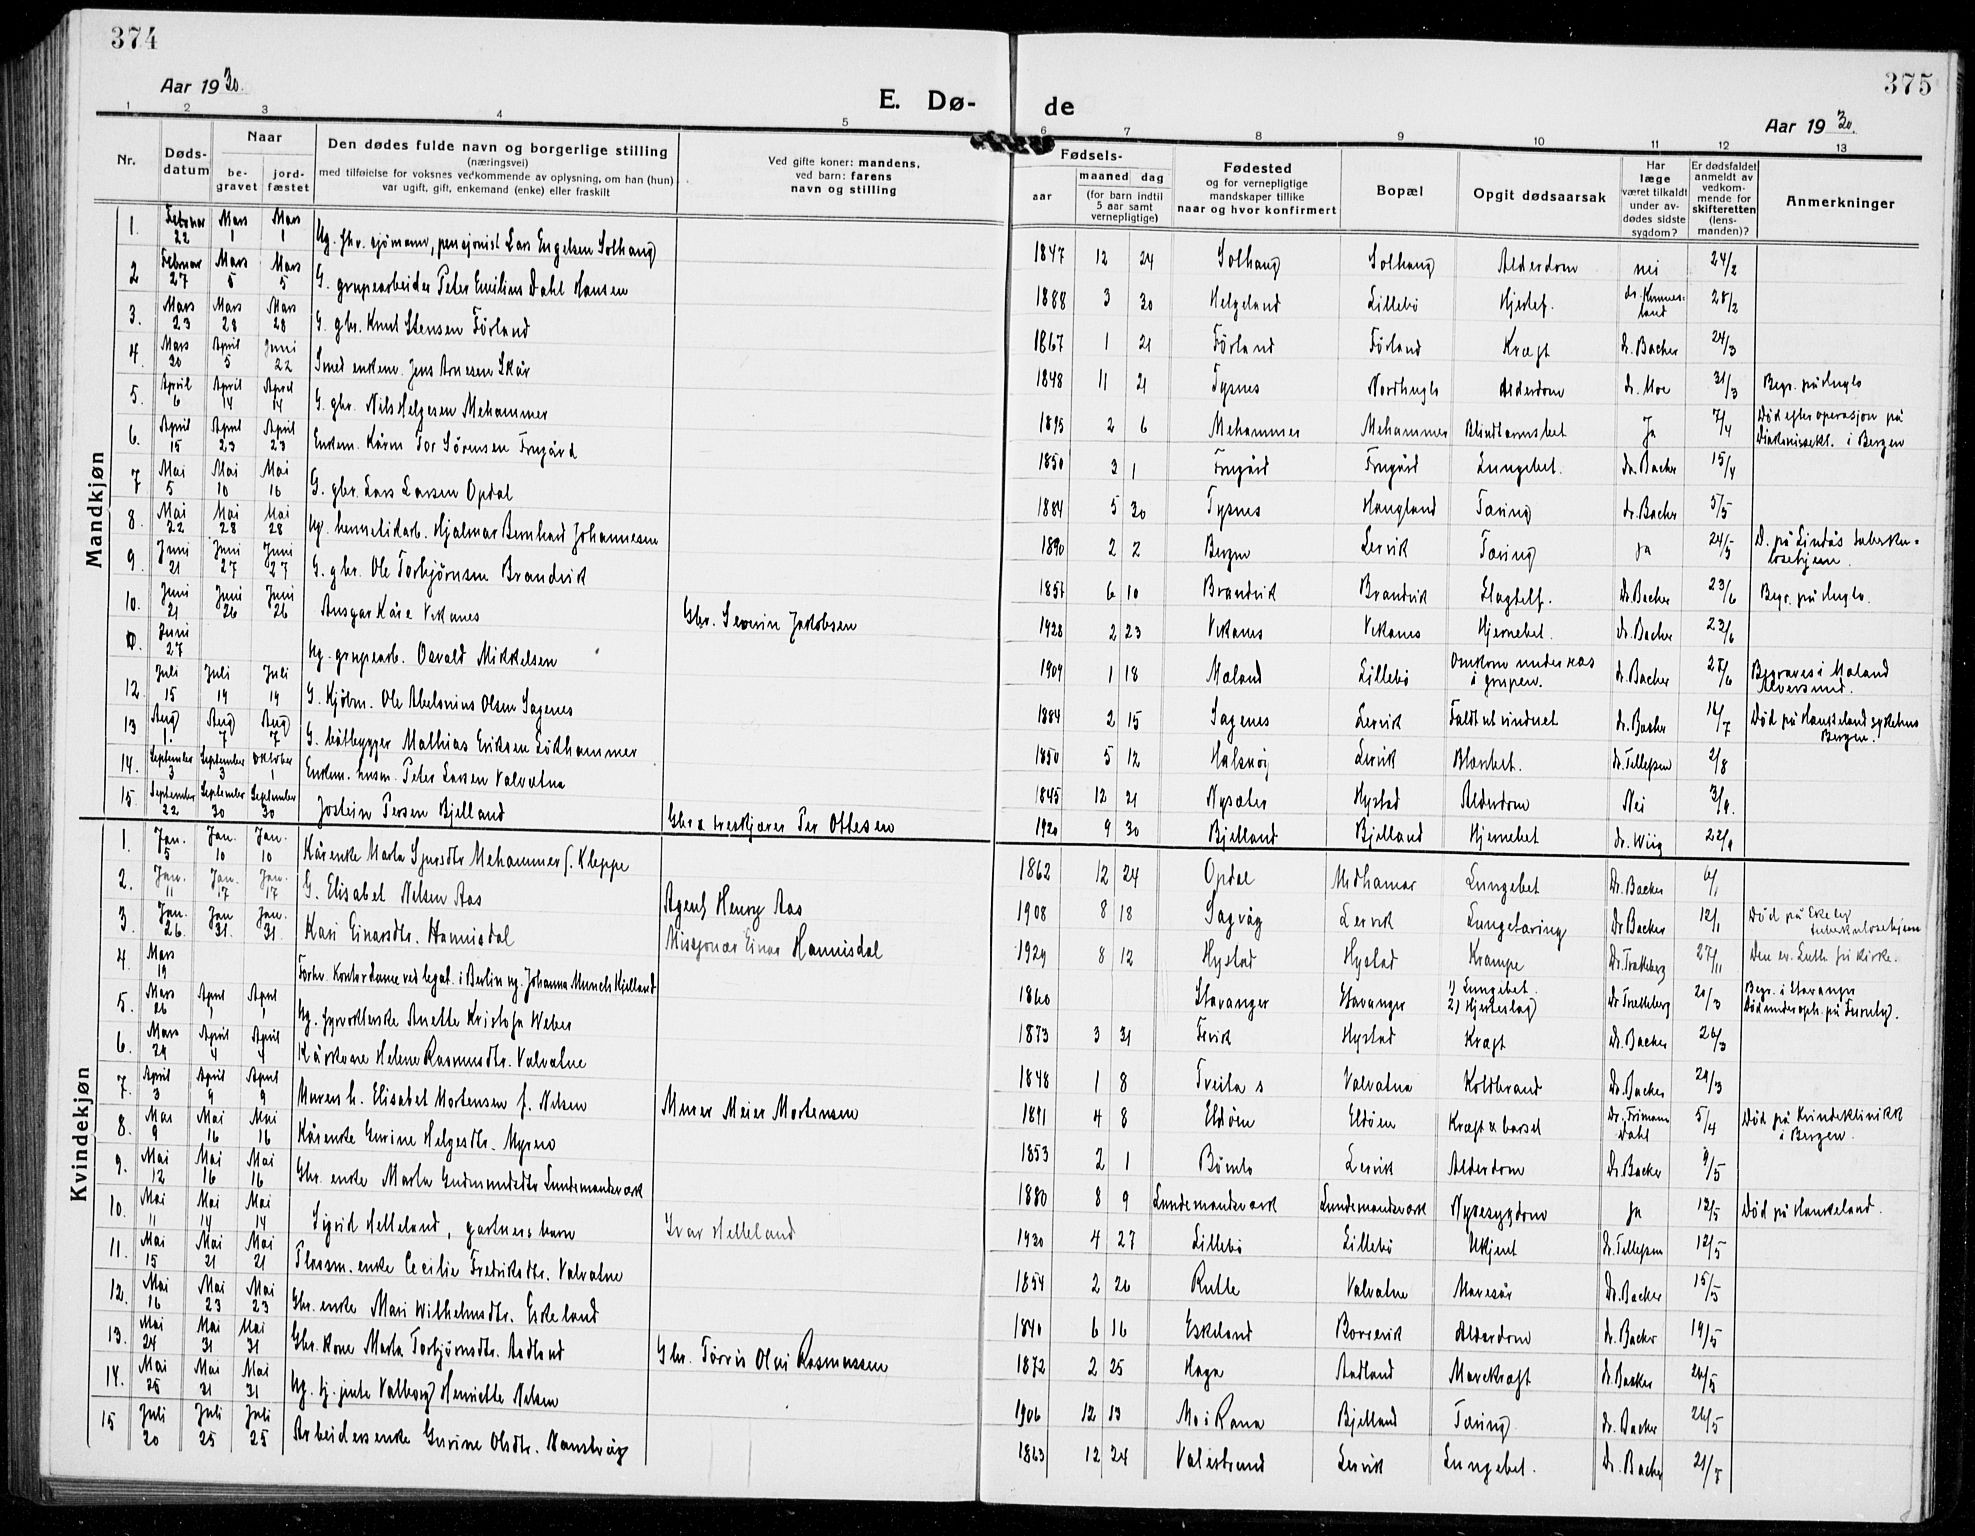 374
Aar 1930.
E. Dø-
1 2 3 4 5
Nr.
Døds-
datum
Naar
be-
gravet
jord-
fæstet
Den dødes fulde navn og borgerlige stilling
(næringsvei)
med tilføielse for voksnes vedkommende av oplysning, om han (hun)
var ugift, gift, enkemand (enke) eller fraskilt
Ved gifte koner: mandens,
ved barn: farens
navn og stilling
Mandkjøn
1. Februar 22 Mars 1 Mars 1 Ug. fhv. sjømann, pensjonist Lars Engelsen Solhaug
2 Februar 27 Mars 5 Mars 5 G. grupearbeider Peter Emilius Dahl Hansen
3. Mars 23 Mars 28 Mars 28 G. gbr. Knut Stensen Førland
4. Mars 30 April 5 Juni 22 Smed enkem. Jens Arnesen Skår
5. April 6 April 14 April 14 G. gbr. Nils Helgesen Mehammer
6. April 15 April 23 April 23 Enkem. Kårm Tor Sørensen Frugård
7 Mai 5 Mai 10 Mai 16 G. gbr. Lars Larsen Opdal
8. Mai 22 Mai 28 Mai 28 Ug. hermetikarb. Hjalmar Bernhard Johannesen
9. Juni 21 Juni 27 Juni 27 G. gbr. Ole Torbjørnsen Brandvik
10. Juni 21 Juni 26 Juni 26 Ansgar Kåre Vikanes Gbr. Severin Jakobsen
Juni 27 Ug. grupearb. Osvald Mikkelsen
12. Juli 15 Juli 19 Juli 19 G. Kjøbm. Ole Abelsnius Olsen Sagenes
13 Aug 1. Aug 7 Aug 7 G. båtbygger Mathias Eriksen Løkhammer
14. September 3 September 3 Oktober 1 Enkem. husm. Peter Larsen Valvatna
15. September 22 September 30 September 30 Jostein Persen Bjelland Gbr & treskjærer Per Ottesen
Kvindekjøn
1. Jan. 5 Jan. 10 Jan. 10 Kårenke Marta Sjursdtr Mehammer f. Kleppe
2. Jan. 11 Jan. 17 Jan. 17 G. Elisabet Nilsen Aas Agent Henry Aas
3. Jan. 26. Jan 31. Jan. 31. Kari Einarsdtr. Hannisdal Misjonær Einar Hannisdal
4. Mars 19 Forhv. Kontordame ved legat. i Berlin ug. Johanna Munch Kjelland
5. Mars 26 April 1 April 1 Ug. syrvkterske Anette Kristofa Weber
6. Mars 29 April 4 April 4 Kårkone Helene Rasmusdtr. Valvatne
7. April 3 April 9 April 9 Murers h. Elisabet Mortensen f. Nilsen Murer Meier Mortensen
8. Mai 9 Mai 16 Mai 16 Kårenke Gurine Helgesdtr. Myrero
9. Mai 12 Mai 16 Mai 16 Gbr. enke Marta Gudmundsdtr Lundemandsverk
10. Mai 11 Mai 14 Mai 14 Sigrid Helleland, gartners barn Ivar Helleland
11. Mai 15 Mai 21 Mai 21 Plassm. enke Cecilie Fredriksdtr. Valvatne
12. Mai 16 Mai 23 Mai 23 Gbr. enke Mari Wilhelmsdtr. Eskeland
13. Mai 24 Mai 31 Mai 31 Gbr. kone Marta Torbjørnsdtr. Aadland Gbr. Tørris Olai Rasmussen
14. Mai 25 Mai 31 Mai 31 Ug. tj. jente Valborg Henriette Nilsen
15 Juli 20 Juli 25 Juli 25 Arbeidersenke Gurine Olsdtr. Nanstvåg
375
de
Aar 1930.
6 7 8 9 10 11 12 13
Fødsels-
aar
maaned dag
(for barn indtil
5 aar samt
vernepligtige)
Fødested
og for vernepligtige
mandskaper tillike
naar og hvor konfirmert
Bopæl
Opgit dødsaarsak
Har
læge
været tilkaldt
under av-
dødes sidste
sygdom?
Er dødsfaldet
anmeldt av
vedkom-
mende for
skifteretten
(lens-
manden)?
Anmerkninger
1847 12 24 Solhaug Solhaug Alderdom nei 24/2
1888 3 30 Helgeland Lillebø Hjertef. 28/2
1867 1 21 Førland Førland Kræft dr. Backer 24/3
1848 11 21 Tysnes Nordhuglo Alderdom dr. Moe 31/3 Begr. på Huglo
1895 2 6 Mehammer Mehammer Blindtarmsbet Ja 7/4 Død efter operasjon på
Diakonissekl. i Bergen
1850 3 1 Frugård Frugård Lungebet. dr. Backer 15/4
1884 5 30 Tysnes Haugland Tæring dr. Backer 5/5
1890 2 2 Bergen Lervik Tæring ja 24/5 D. på Lindås tuberku-
losehjem.
1857 6 10 Brandvik Brandvik Slagtilf. Dr. Backer 23/6 Begr. på Huglo.
1928 2 23 Vikanes Vikanes Hjernebet. dr. Backer 23/6
1909 1 18 Maland Lillebø Omkom under ras
i grupen. dr. Backer 28/6 Begraves i Maland
Alversund.
1884 2 15 Sagenes Lervik Faldt ut vinduet dr. Backer 16/7 Død på Haukeland sykehus
Bergen.
1850 5 12 Halsnøy Lervik Blærebet. dr. Tellefsen 2/8
1845 12 21 Nysæter Hystad Alderdom Nei 3/9.
1920 9 30 Bjelland Bjelland Hjernebet dr. Wiig 22/9
1862 12 24 Opdal Midhamar Lungebet Dr. Backer 6/1
1908 8 18 Sagvåg Lervik Lungetæring Dr Backer 12/1 Død på Ekeby
tuberkulosehjem
1929 8 12 Hystad Hystad Krampe Dr. Trætteberg 27/11 Den ev. Luth. frikirke.
1860 Stavanger Stavanger 1) Lungebet.
2) Hjerteslag) Dr Trætteberg 20/3 Begr. i Stavanger
Død under oph. på Fernly).
1873 3 31 Ervik Hystad Kræft Dr. Backer 26/3
1848 1 8 Tveita s Valvatna Koldbrand Dr. Backer 29/3
1891 4 8 Eldøen Eldøen Kræft & barsel Dr. Frimann
Dahl 5/4 Død på Kvindeklinikk
i Bergen.
1853 2 1 Bømlo Lervik Alderdom Dr. Backer 9/5
1880 8 9 Lundemandsverk Lundemandsverk Nyresygdom Ja 12/5 Død på Haukeland.
1930 4 27 Lillebø Lillebø Ukjent Dr. Tellefsen 12/5
1854 2 26 Rutle Valvatne Mavesår Dr. Backer 15/5
1840 6 16 Eskeland Borrevik Alderdom dr. Backer 19/5
1872 2 25 Haga Aadland Mavekræft Dr. Backer 26/5
1906 12 13 Mo i Rana Bjelland Tæring dr. Backer 26/5
1863 12 24 Valestrand Lervik Lungebet. Dr. Backer 21/7